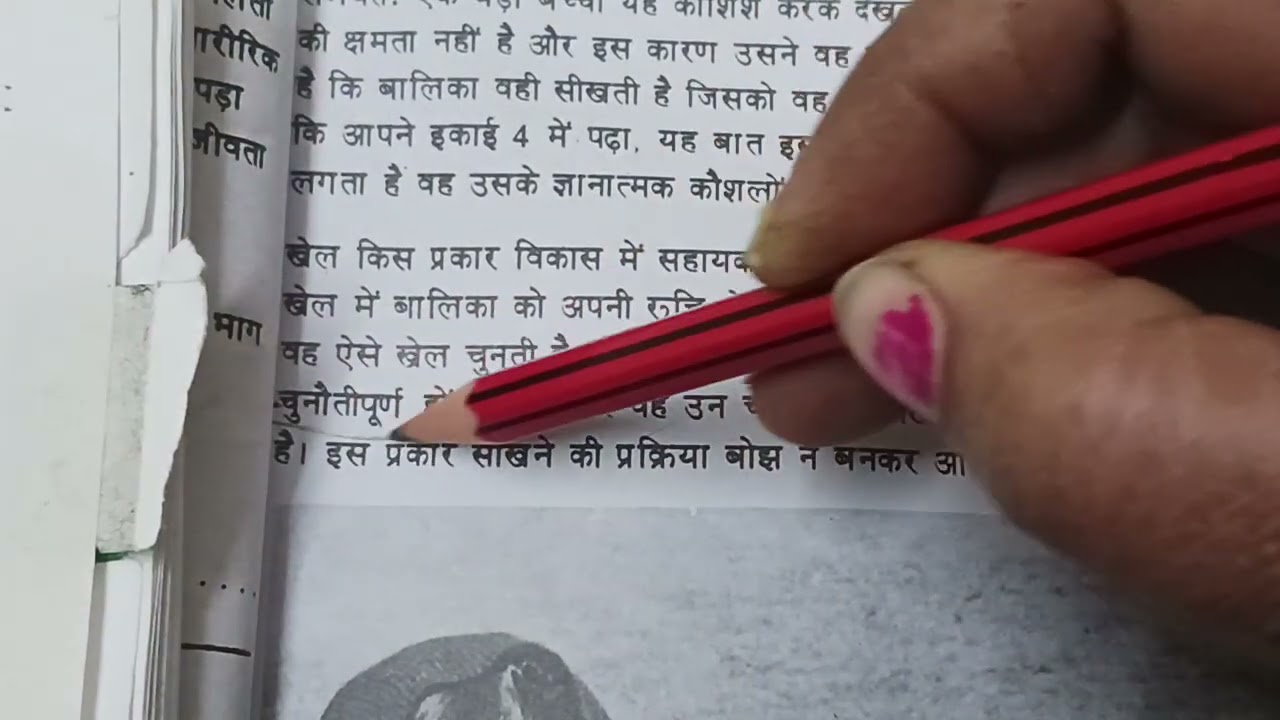 शारीरिक
पड़ा
जीवता
भाग
यह कोशिश करके
की क्षमता नहीं है और इस कारण उसने वह
है कि बालिका वही सीखती है जिसको वह
कि आपने इकाई 4 में पढ़ा, यह बात
लगता है वह उसके ज्ञानात्मक कौशलों
खेल किस प्रकार विकास में सहायक
खेल में बालिका को अपनी
वह ऐसे खेल चुनती है
चुनौतीपूर्ण वह उन
है। इस प्रकार साखने की प्रक्रिया बोझ न बनकर